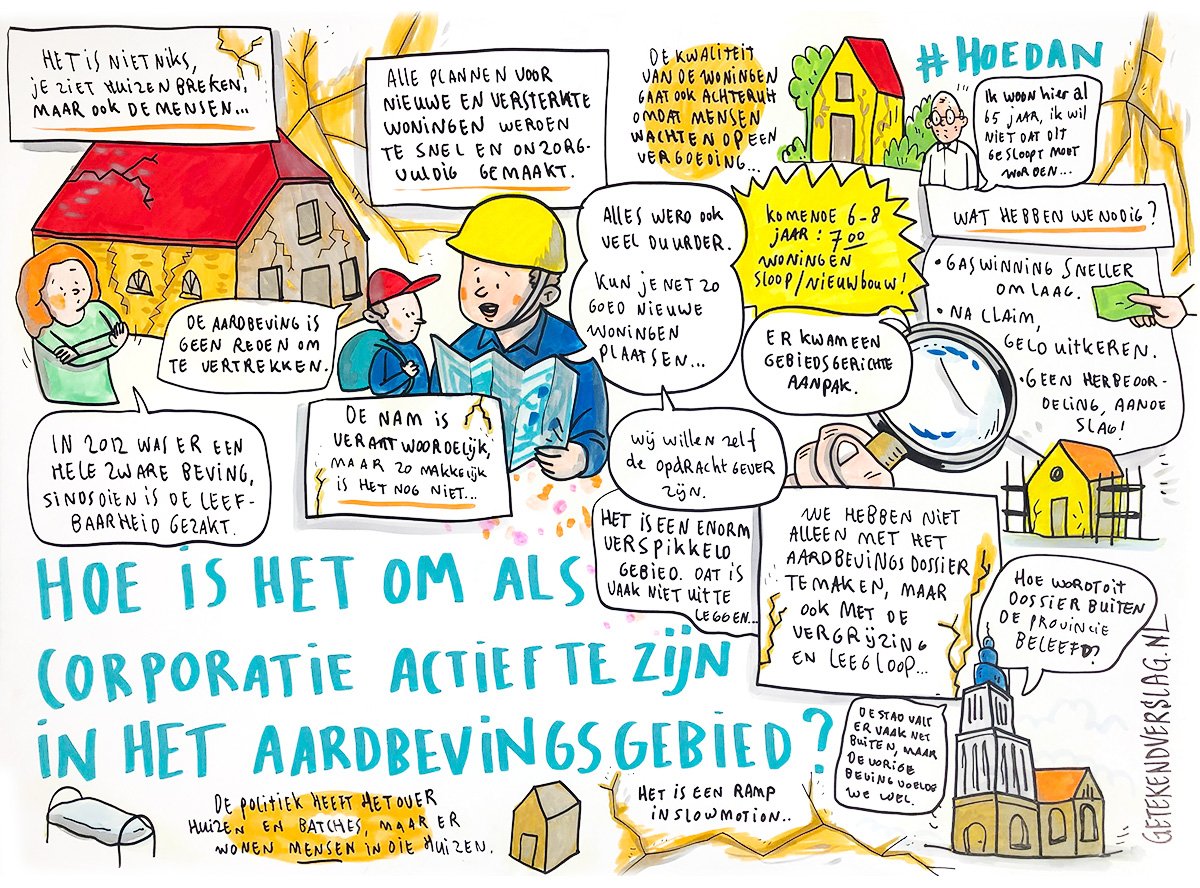 HET IS NIET NIKS,
JE ZIET HUIZEN BREKEN,
MAAR OOK DE MENSEN...
ALLE PLANNEN VOOR
NIEUWE EN VERSTERKTE
WONINGEN WERDEN
TE SNEL EN ONZORG-
VULDIG GEMAAKT.
DE KWALITEIT
VAN DE WONINGEN
GAAT OOK ACHTERUIT
OMDAT MENSEN
WACHTEN OP EEN
VERGOEDING...
#HOEDAN
IK WOON HIER AL
65 JAAR, IK WIL
NIET DAT DIT
GESLOOPT MOET
WORDEN...
ALLES WERD OOK
VEEL DUURDER.
KUN JE NET ZO
GOED NIEUWE
WONINGEN
PLAATSEN...
KOMENDE 6-8
JAAR: 700
WONINGEN
SLOOP/NIEUWBOUW!
WAT HEBBEN WE NODIG?
• GASWINNING SNELLER
OMLAAG.
• NA CLAIM,
GELD UITKEREN.
• GEEN HERBEOOR-
DELING, AANDE
SLAG!
DE AARDBEVING IS
GEEN REDEN OM
TE VERTREKKEN.
ER KWAM EEN
GEBIEDSGERICHTE
AANPAK.
IN 2012 WAS ER EEN
HELE ZWARE BEVING,
SINDSDIEN IS DE LEEF-
BAARHEID GEZAKT.
DE NAM IS
VERANTWOORDELIJK,
MAAR ZO MAKKELIJK
IS HET NOG NIET...
WIJ WILLEN ZELF
DE OPDRACHTGEVER
ZIJN.
HET IS EEN ENORM
VERSPIKKELD
GEBIED. DAT IS
VAAK NIET UIT TE
LEGGEN...
WE HEBBEN NIET
ALLEEN MET HET
AARDBEVINGSDOSSIER
TE MAKEN, MAAR
OOK MET DE
VERGRIJZING
EN LEEGLOOP...
HOE WORDT DIT
DOSSIER BUITEN
DE PROVINCIE
BELEEFD?
HOE IS HET OM ALS
CORPORATIE ACTIEF TE ZIJN
IN HET AARDBEVINGSGEBIED?
DE STAD VALT
ER VAAK NET
BUITEN, MAAR
DE VORIGE
BEVING VOELDE
WE WEL.
DE POLITIEK HEEFT HET OVER
HUIZEN EN BATCHES, MAAR ER
WONEN MENSEN IN DIE HUIZEN.
HET IS EEN RAMP
IN SLOWMOTION..
GETEKENDVERSLAG.NL